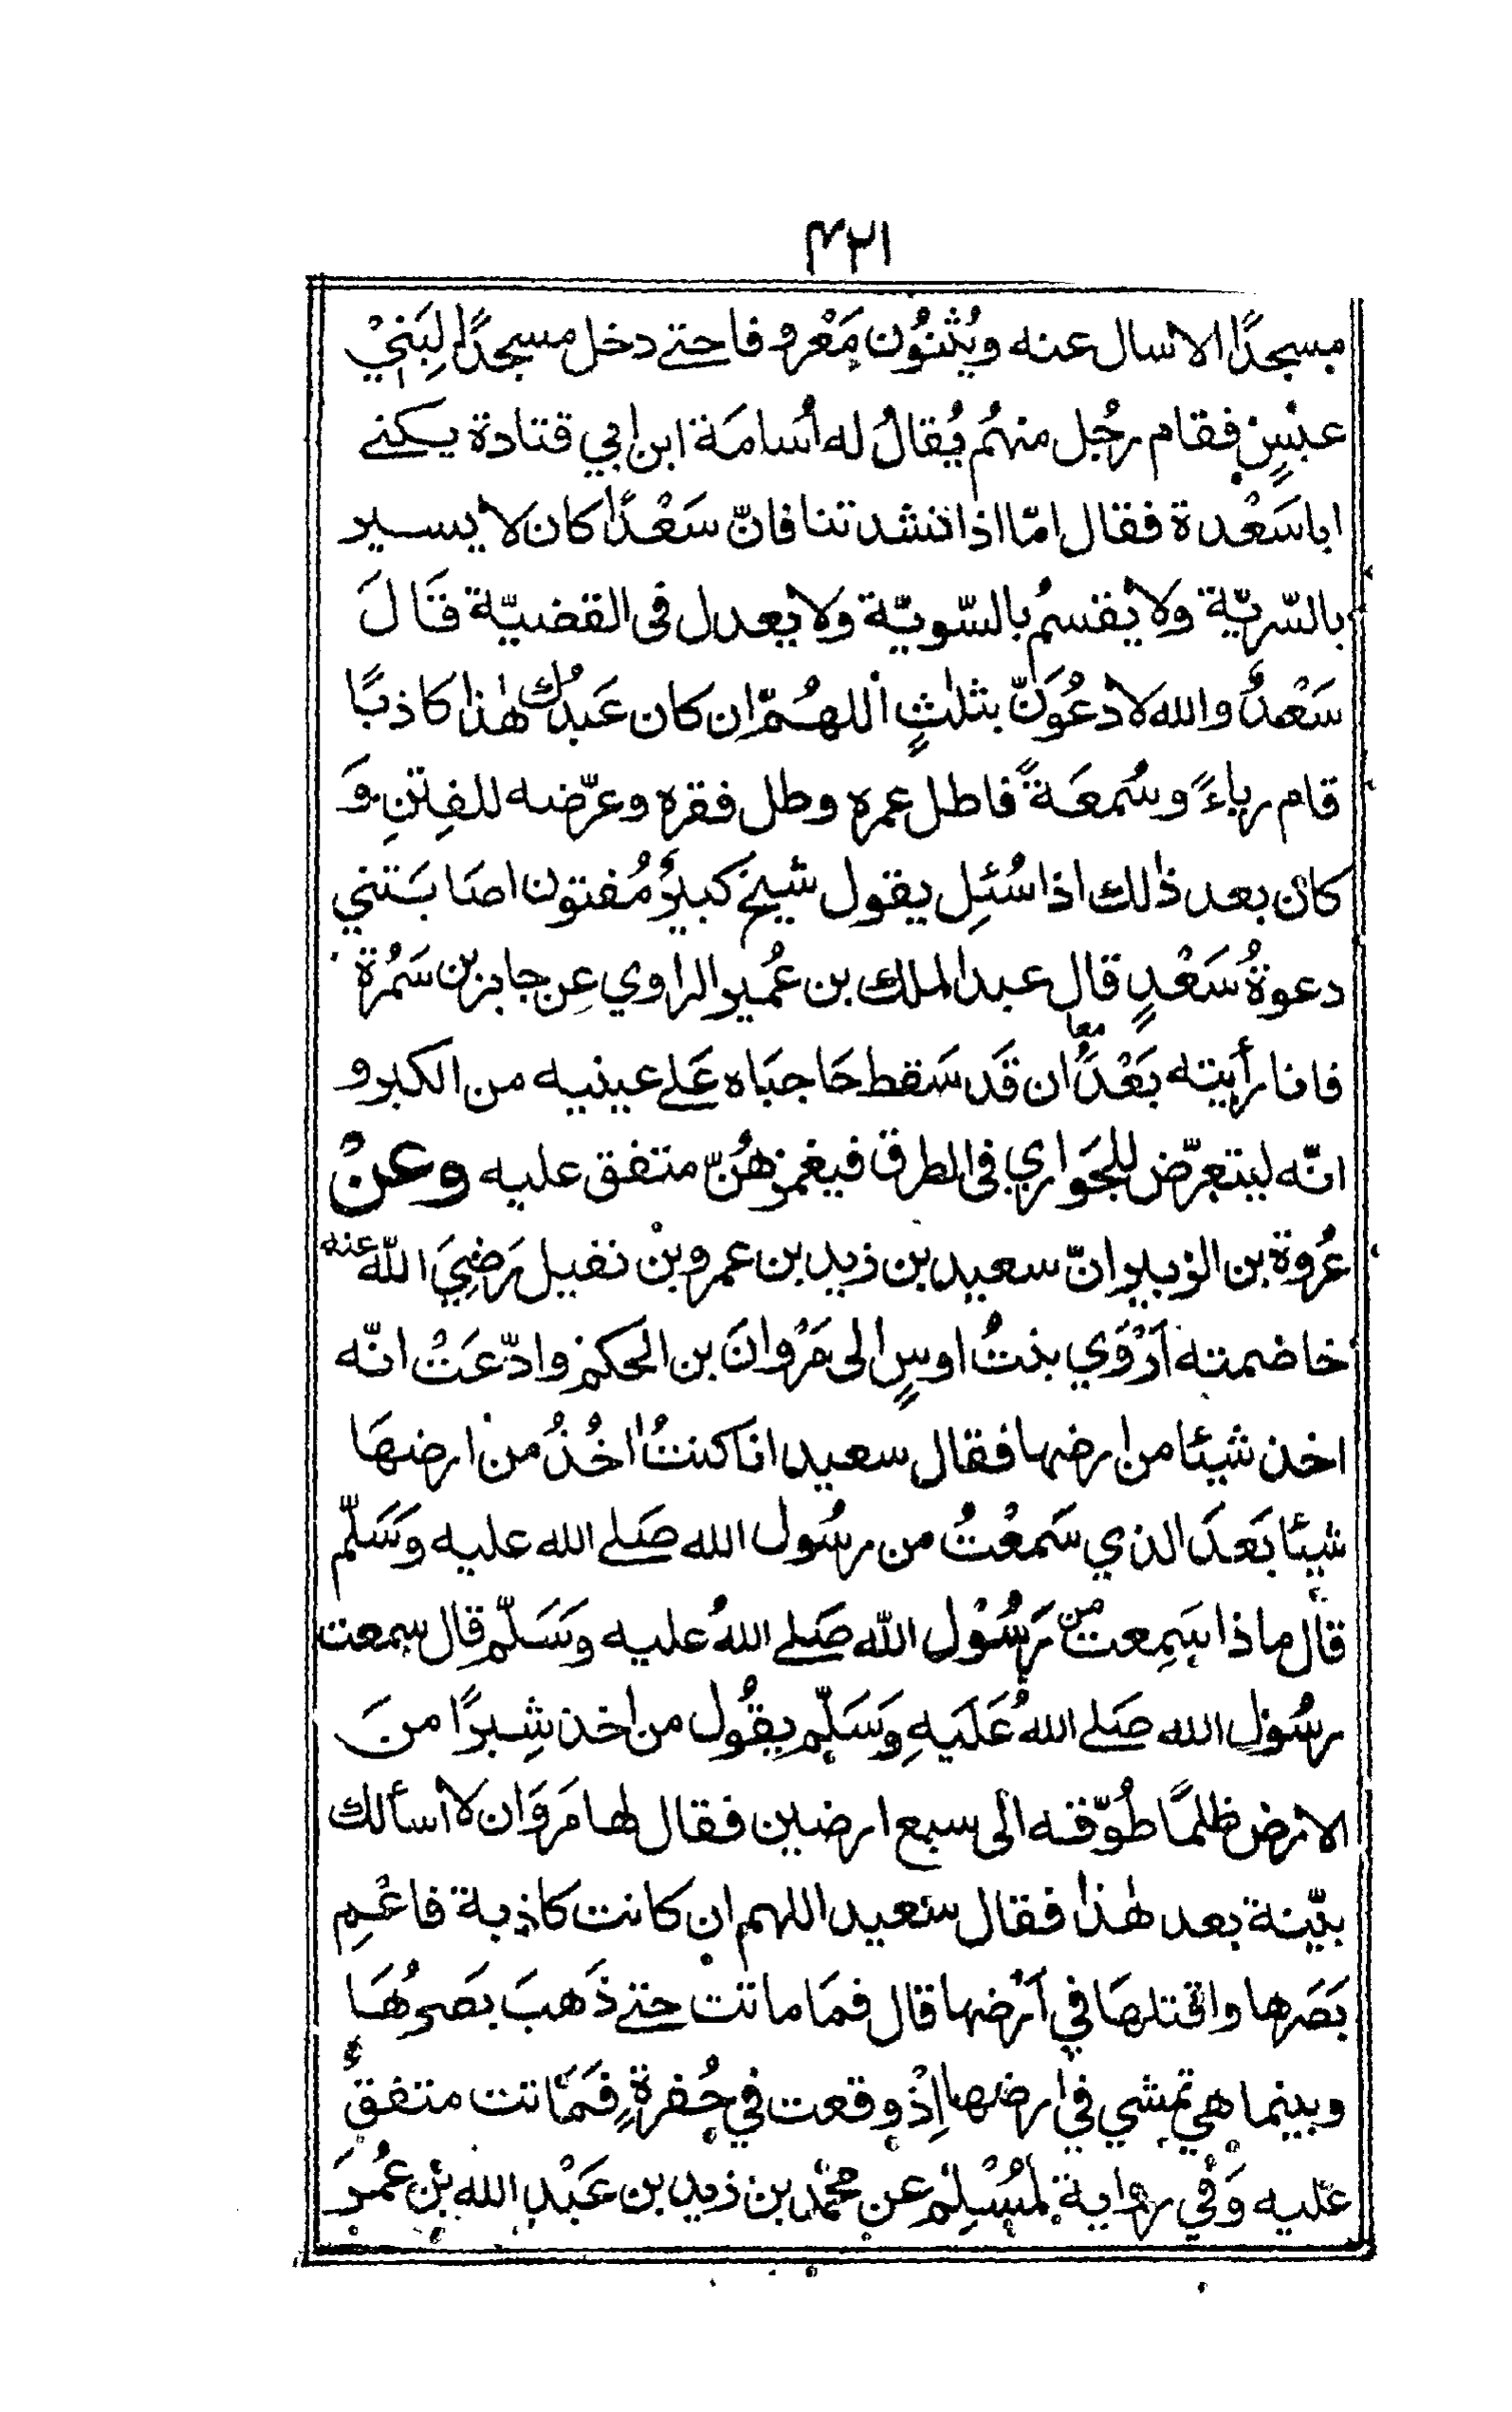 ۴۲۱
مسجدًا الا سال عنه ويُثنُوُن مَعْروفا حتے دخل مسجدًا لِبَنِيْ
عبْسٍ فقام رجُل منهُم يُقالُ له اُسامَة ابن ابي قتادة يكنے
ابا سَعْدة فقال امّا اذا نشدتنا فانّ سَعْدًا كان لا يسير
بالسّريّة ولا يقسمُ بالسّويّة ولا يعدل فى القضيّة قَالَ
سَعْدٌ والله لادعُوَنّ بثلٰثٍ اللهُمّ ان كان عَبدُك هٰذا كاذبًا
قام رياءً وسُمعَةً فاطل عمره وطل فقره وعرّضه للفِتنِ وَ
كان بعد ذٰلك اذا سُئِل يقول شيخ كبيرٌ مُفتون اصَابَتني
دعوةُ سَعْدٍ قال عبد الملك بن عُمير الراوي عن جابر بن سَمُرة
فانا رأيته بَعْدُ ان قَد سَقط حَاجبَاه عَلے عينيه من الكبر و
انّه ليتعرّض للجَواري فى الطرق فيغمزهُنّ متفق عليه وعنْ
عُروة بن الزبير انّ سعيد بن زيد بن عمرو بنْ نفيل رَضِيَ اللّٰه عنه
خاصمته اَرْوَي بنتُ اوسٍ الى مَرْوانَ بن الحكم وادّعَتْ انّه
اخذ شيئا من ارضها فقال سعيد انا كنتُ اٰخُذُ من ارضهَا
شيئا بَعَدَ الذي سَمعْتُ من رسُول الله صَلے الله عليه وَسَلّم
قال ماذا سَمِعت من رَسُوْل اللّٰه صَلے اللهُ عليه وَسَلّم قال سمعت
رسُوْل الله صَلے اللهُ عَلَيهِ وَسَلّم يقُول من اخذ شِبرًا منَ
الارض ظلمًا طُوّقه الى سبع ارضين فقال لها مَروَان لا اسألك
بيّنة بعد هٰذا فقال سَعيد اللهم ان كانت كاذبة فاعْمِ
بَصَرها واقتلهَا في اَرْضها قال فمَا ماتت حتے ذَهبَ بصَرُهَا
وبينما هي تمشي في ارضها اِذْ وقعت في حُفرةٍ فمَاتت متفقٌ
عليه وَفي رواية لمُسْلِم عن محمّد بن زيد بن عَبْد الله بْن عُمرَ